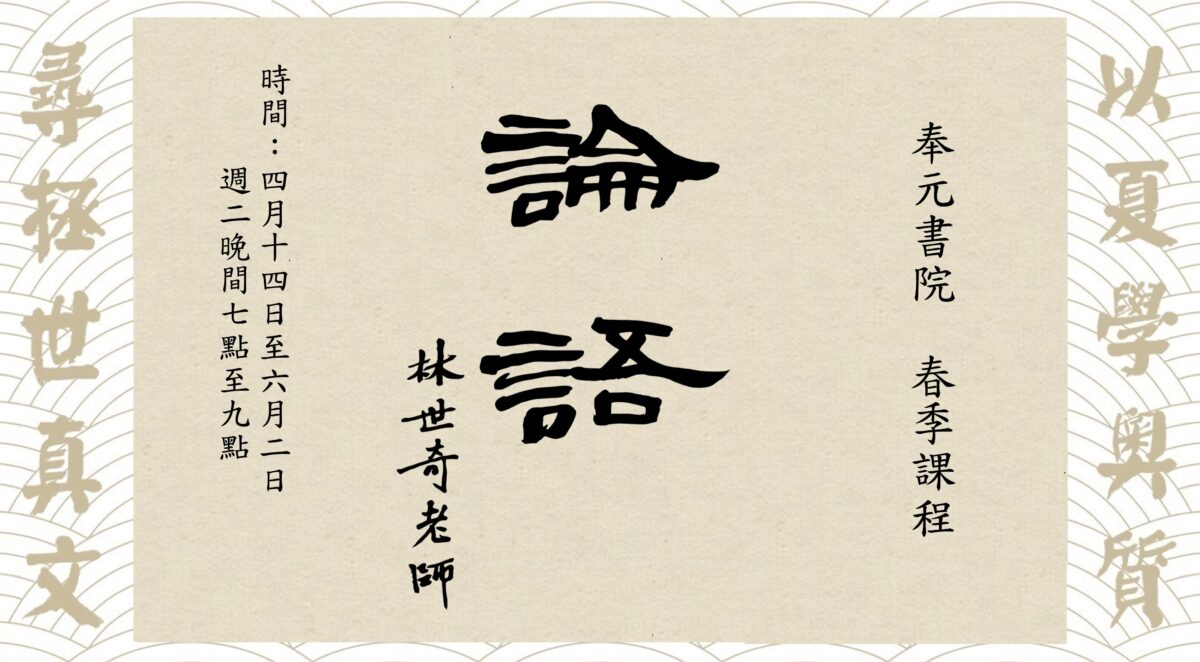 以夏學奧質
奉元書院 春季課程
論語
林世奇老師
時間：四月十四日至六月二日
週二晚間七點至九點
尋拯世真文